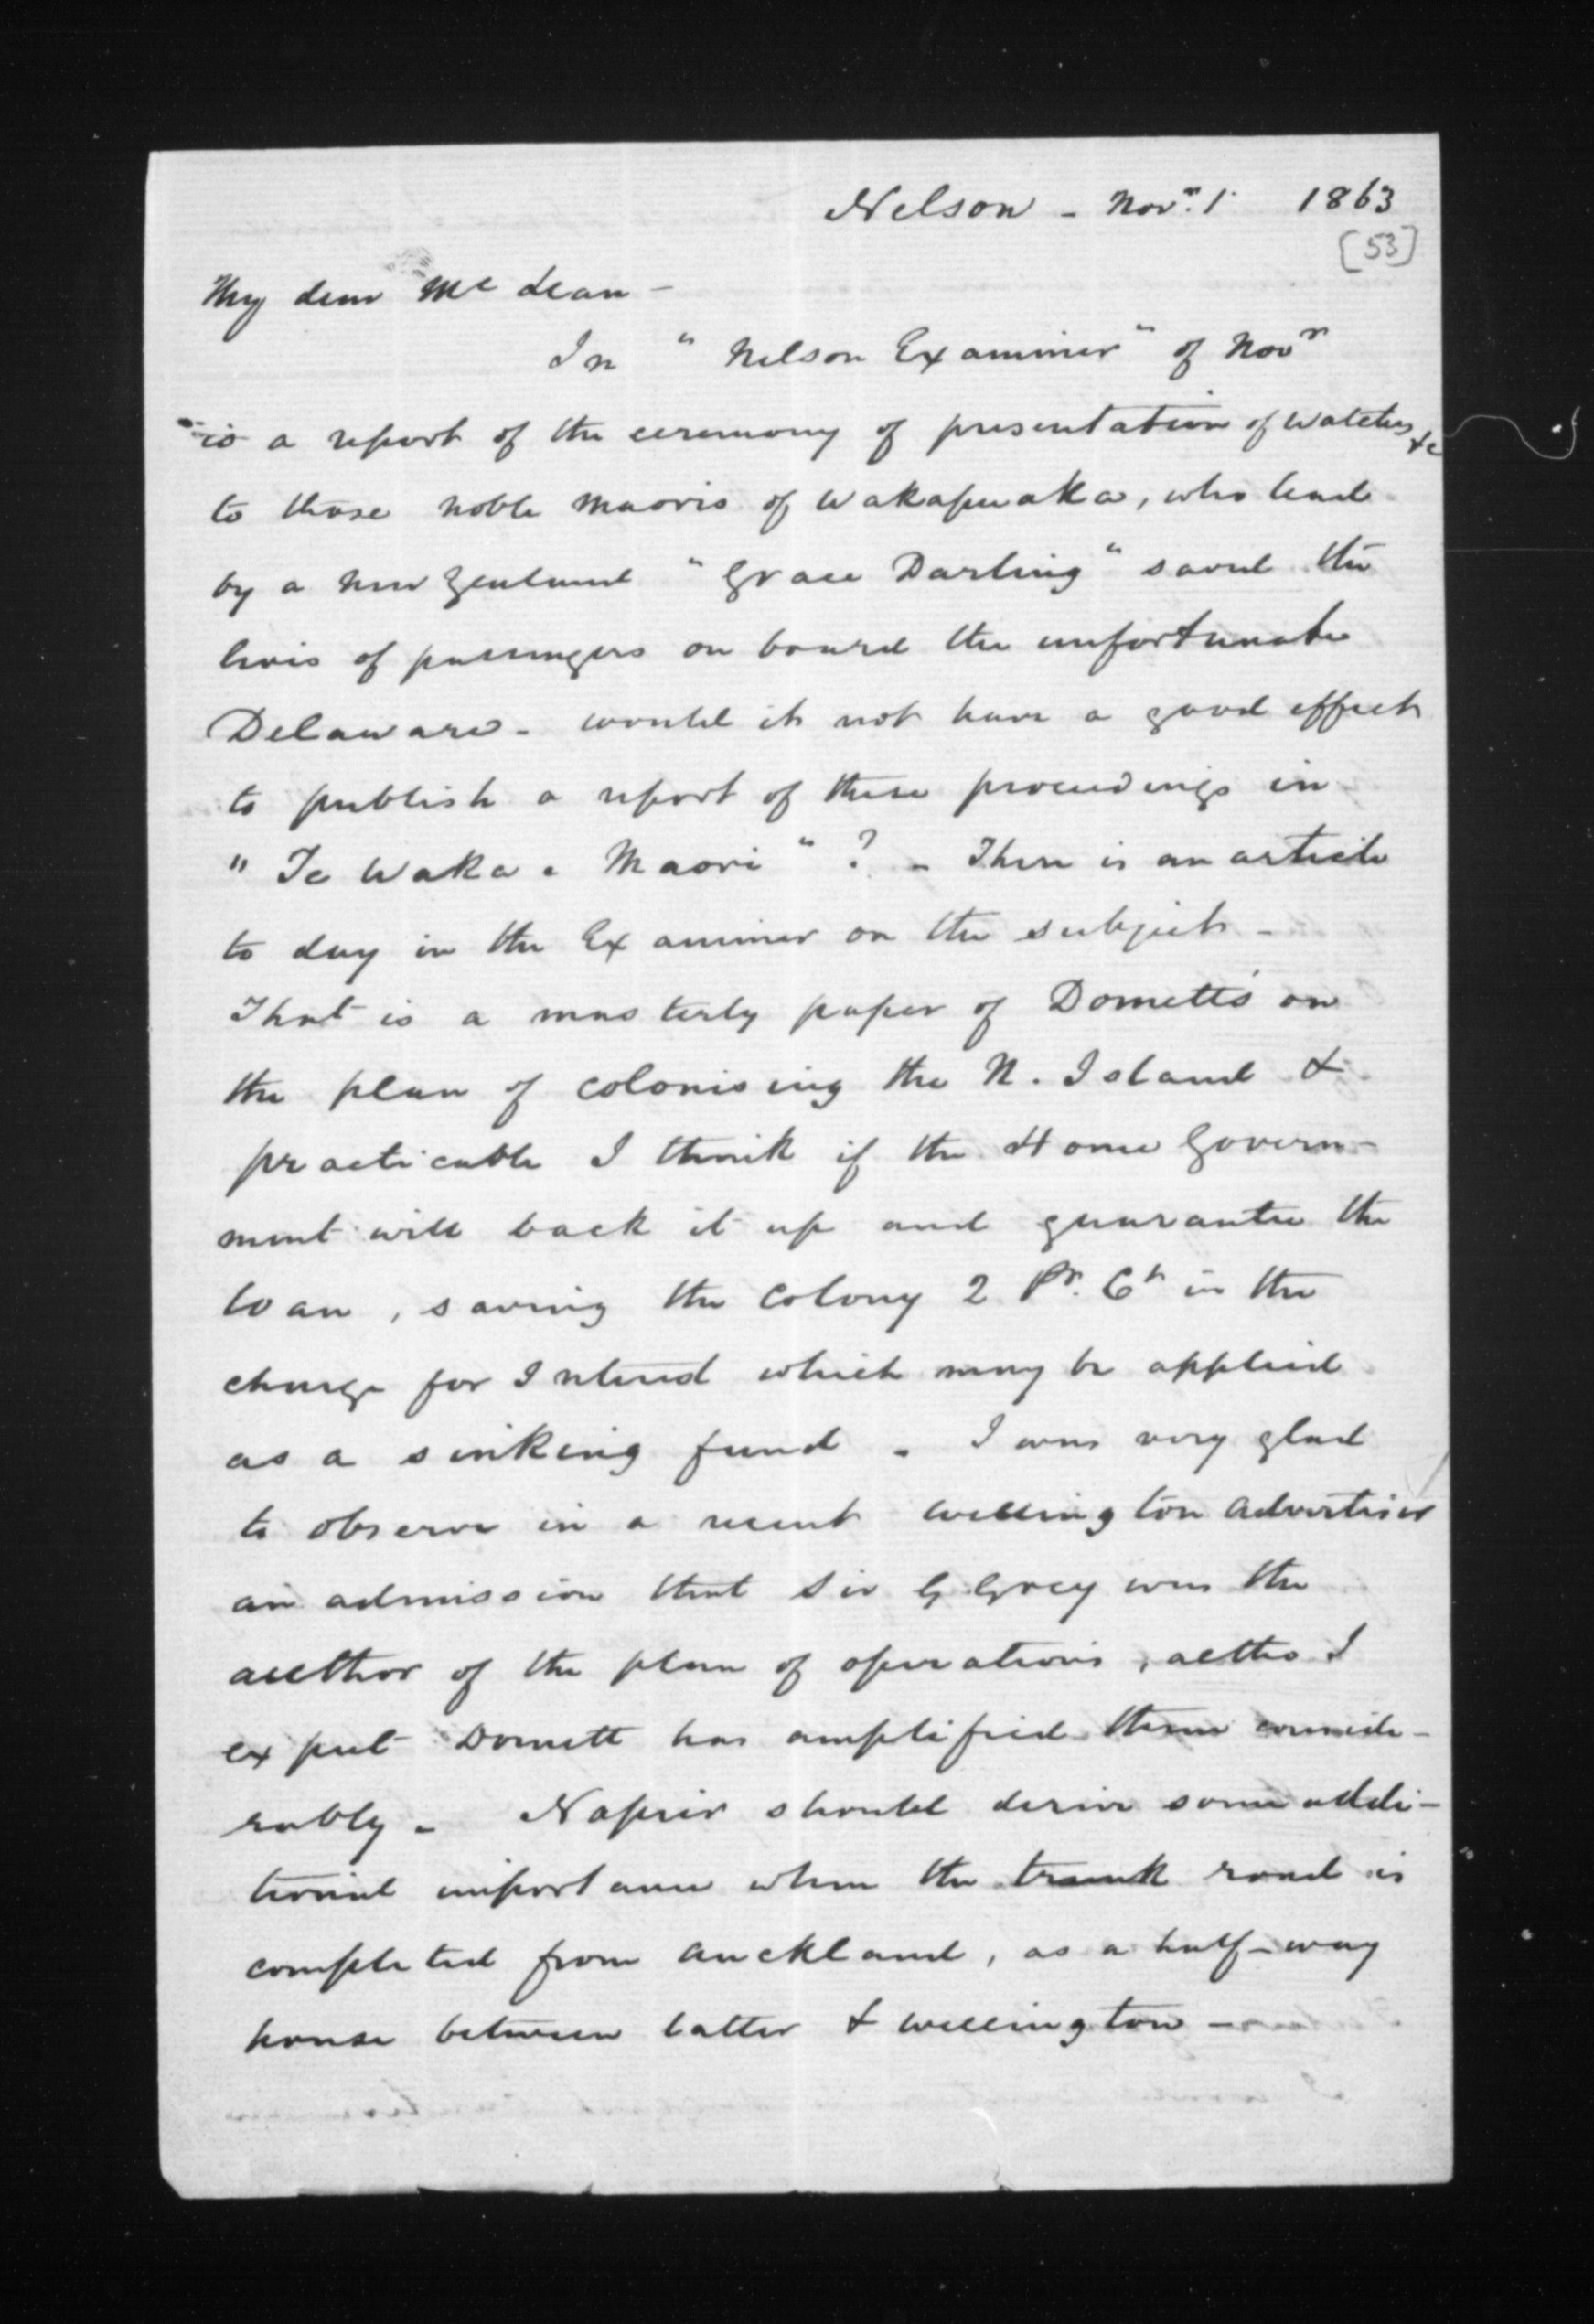 Nelson - Novr. 1 1863
[53]
My dear Mc Lean -
In "Nelson Examiner" of Novr
is a report of the ceremony of presentation of Watches &c
to those noble Maoris of Wakapuaka, who lead
by a New Zealand "Grace Darling" saved the
lives of passengers on board the unfortunate
Delaware - would it not have a good effect
to publish a report of these proceedings in
"Te Waka Maori" ? - There is an article
to day in the Examiner on the subject -
That is a masterly paper of Dometts' on
the plan of colonising the N. Island &
practicable I think if the Home Govern-
ment will back it up and guarantee the
loan, saving the Colony 2 Pr. Ct in the
charge for Interest which may be applied
as a sinking fund - I was very glad
to observe in a recent Wellington Advertiser
an admission that Sir G Grey was the
author of the plan of operations, altho I
expect Domett has amplified them conside-
rably - Napier should derive some addi-
tional importance when the trunk road is
completed from Auckland, as a half-way
house between latter & Wellington -